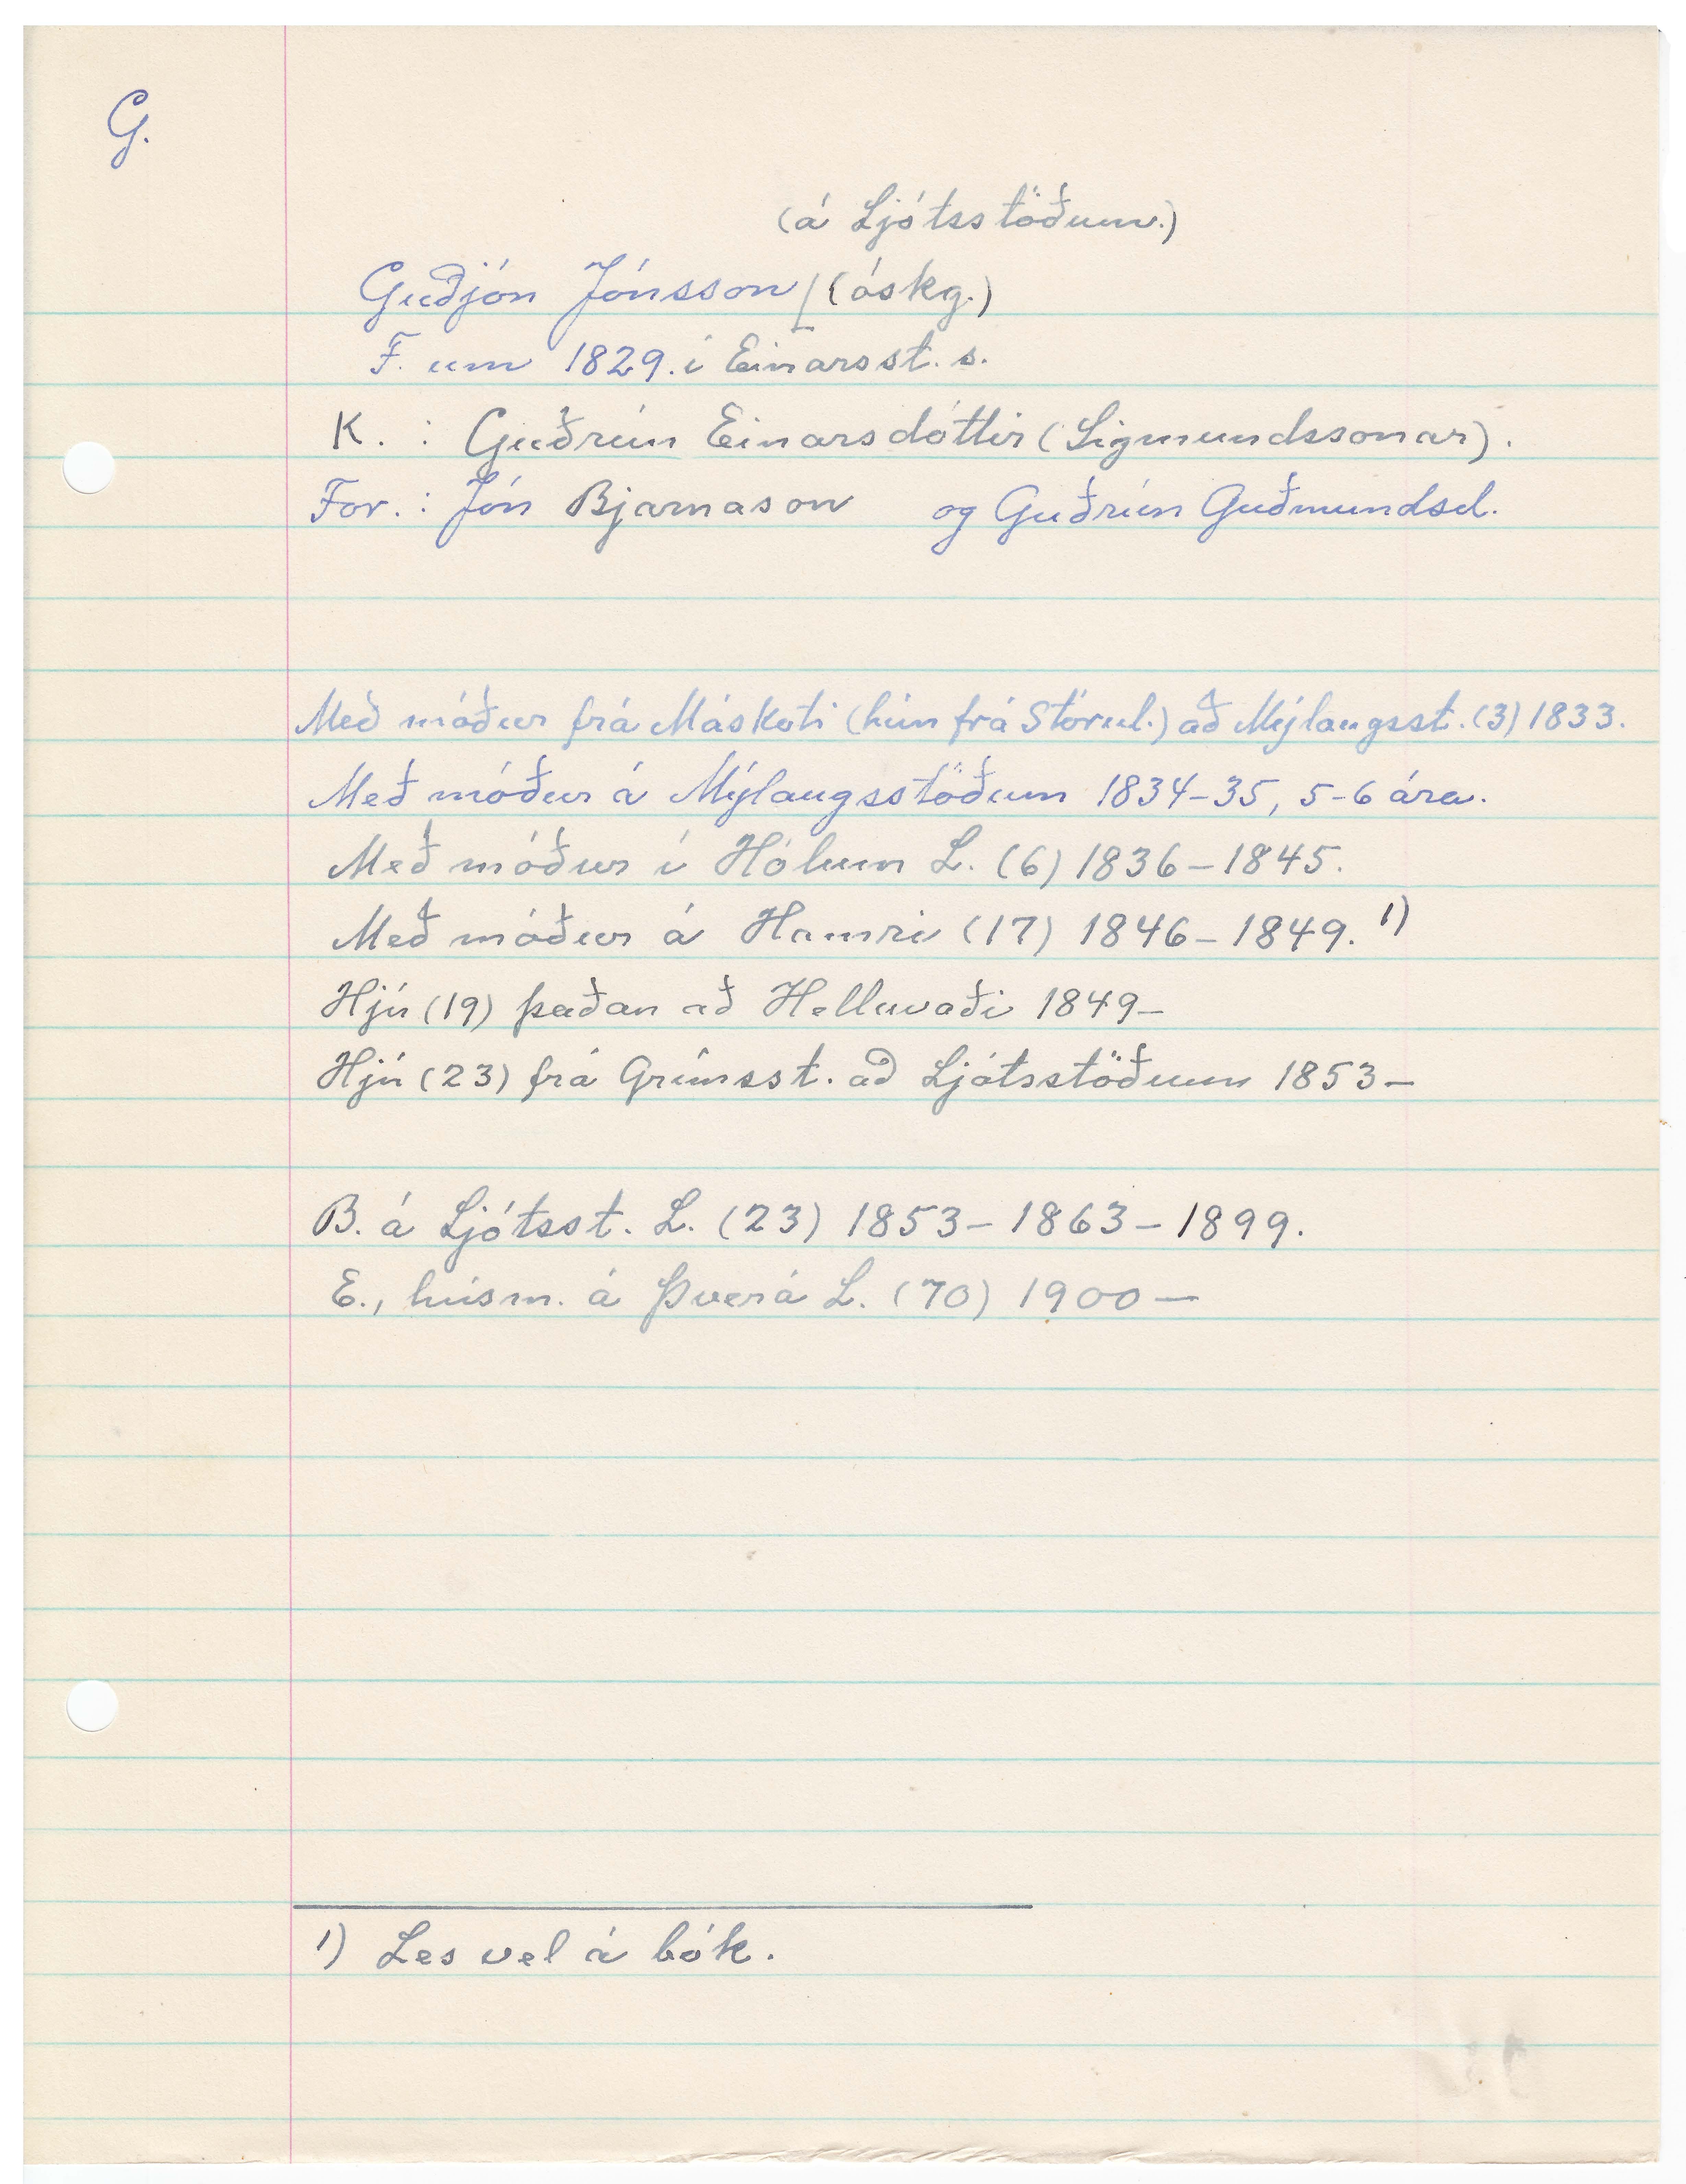 G.
(á Ljótsstöðum.)
Guðjón Jónsson (óskg.)
F. um 1829. í Einarsst. s.
K. : Guðrún Einarsdóttir (Sigmundssonar).
For. : Jón Bjarnason og Guðrún Guðmundsd.
Með móður frá Máskoti (hún frá Stórul.) að Mýlaugsst. (3) 1833.
Með móður á Mýlaugsstöðum 1834-35, 5-6 ára.
Með móður í Hólum L. (6) 1836-1845.
Með móður á Hamri (17) 1846-1849. 1)
Hjú (19) þaðan að Helluvaði 1849-
Hjú (23) frá Grímsst. að Ljótsstöðum 1853-
B. á Ljótsst. L. (23) 1853-1863-1899.
E., húsm. á Þverá L. (70) 1900-
1) Les vel á bók.